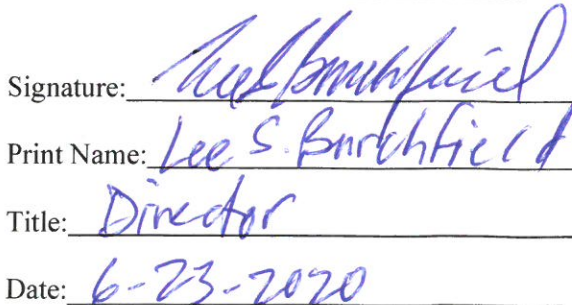 Signature: Lee S Burchfield
Print Name: Lee S. Burchfield
Title: Director
Date: 6-23-2020